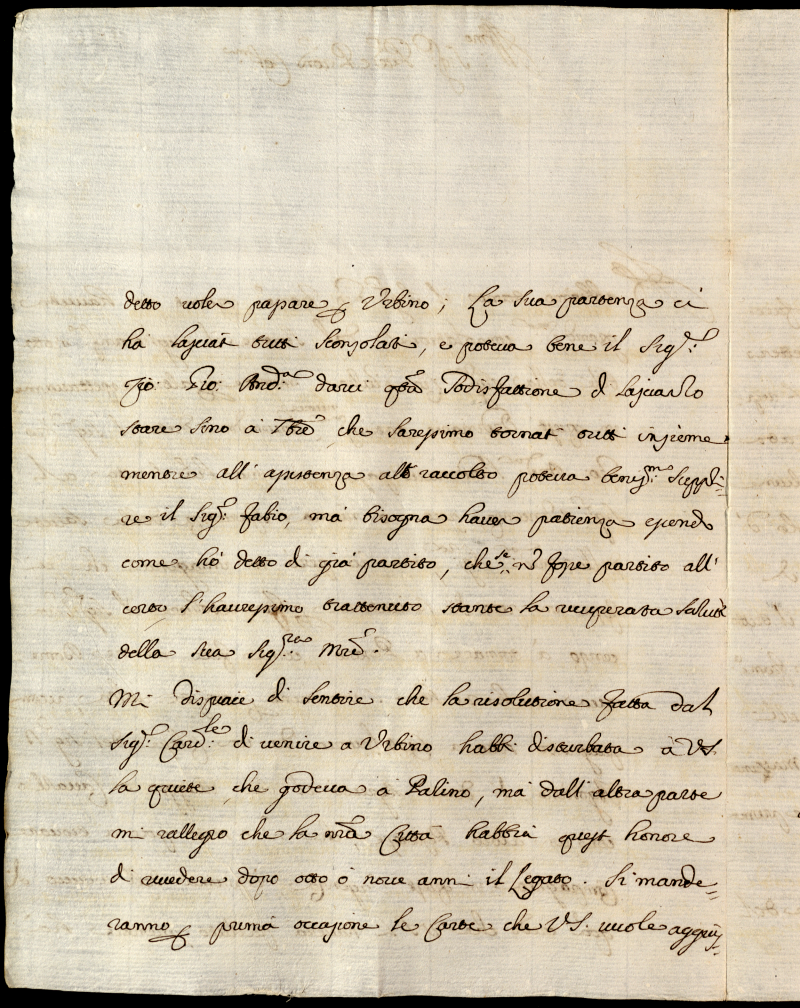 detto voler passare p Urbino; La sua partenza ci
hà lasciati tutti sconsolati, e poteva bene il Sigr:
Gio: And:a darci qta sodisfattione di lasciarlo
stare sino à 7bre che saressimo tornati tutti insieme
mentre all' assistenza all raccolto poteva beniss:mo suppli=
re il Sigr: Fabio, mà bisogna haver patienza essendo
come hò detto di già partito, che se nō fosse partito all'
corto l'hauressimo trattenuto stante la recuperata salute
della sua Sig:ra Mre.
Mi dispiace di sentire che la risolutione fatta dal
Sigr: Card:le di venire a Urbino habbi disturbata à VS.
la quiete che godeva à Palino, mà dall' altra parte
mi rallegro che la nrā Città habbia quest honore
di rivedere dopo otto ò nove anni il Legato. Si mande=
ranno p prima occasione le Carte che VS. vuole aggius=